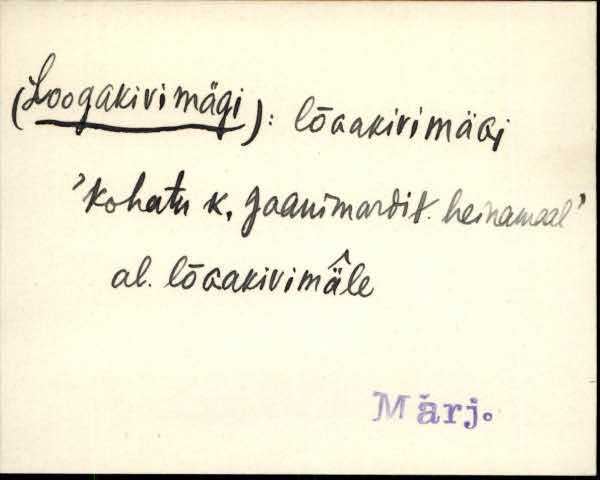 (Loogakivimägi): lōɢakivimäɢi
'Kohatu k. Jaanimardit. heinamaal'
al. lōɢakivimä̂le
Märj.